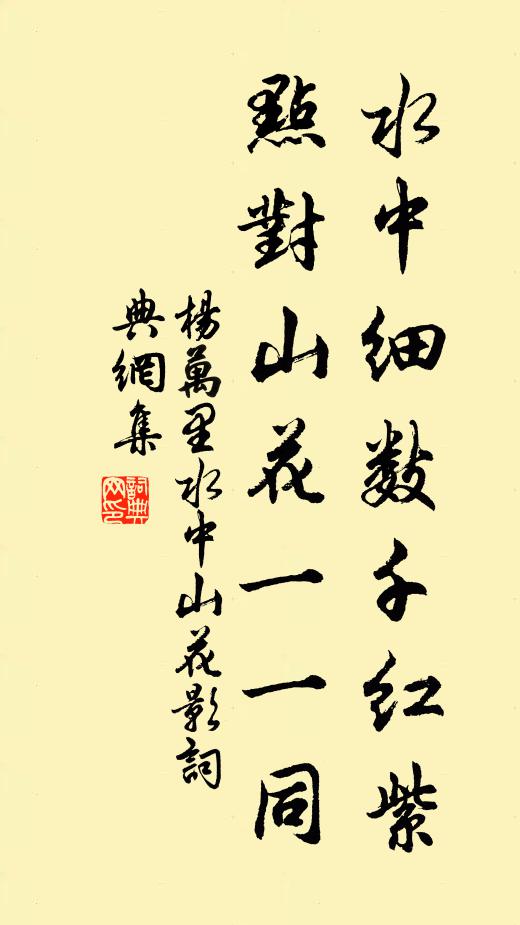 水中细数千红紫
點對山花一一同
楊萬里水中山花影詞
典網集
詞典
网印